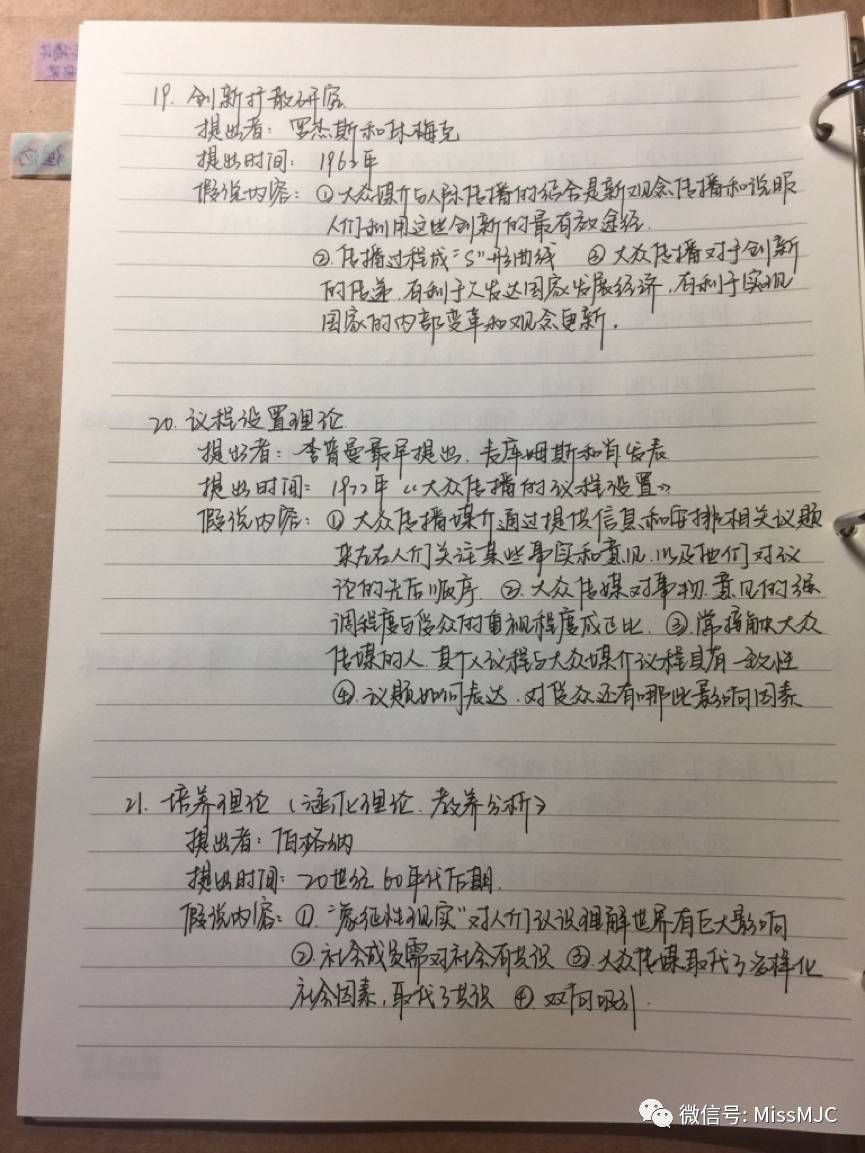 19. 创新扩散研究
提出者：罗杰斯和休梅克
提出时间：1962年
假说内容：①大众媒介与人际传播的结合是新观念传播和说服
人们利用这些创新的最有效途经.
②.传播过程成“S”形曲线 ③大众传播对于创新
的传递，有利于欠发达国家发展经济，有利于实现
国家的内部变革和观念更新.
20. 议程设置理论.
提出者：李普曼最早提出. 麦库姆斯和肖发表
提出时间：1972年《大众传播的议程设置》
假说内容：①大众传播媒介通过提供信息和安排相关议题
来左右人们关注某些事实和意见.以及他们对议
论的先后顺序.②.大众传媒对事物.意见的强
调程度与受众的重视程度成正比.③.常接触大众
传媒的人.其个人议程与大众媒介议程具有一致性
④.议题如何表达.对受众还有哪些影响因素
21. 培养理论（涵化理论.教养分析）
提出者：伯格纳
提出时间：20世纪60年代后期.
假说内容：①.“象征性现实”对人们认识理解世界有巨大影响
②.社会成员需对社会有共识 ③.大众传媒取代了多样化
社会因素，取代了共识 ④.双向吸引.
微信号: MissMJC